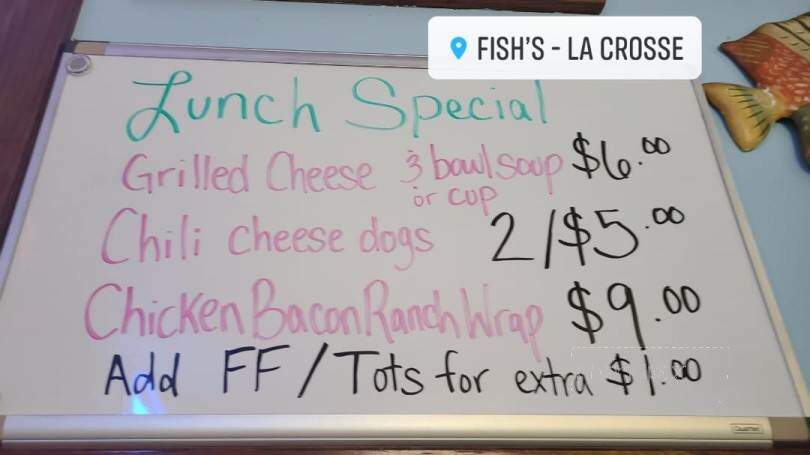 FISH'S - LA CROSSE
Lunch Special
Grilled Cheese & bowl soup $6.00
or cup
Chili cheese dogs 2/$5.00
Chicken Bacon Ranch Wrap $9.00
Add FF/Tots for extra $1.00
Quartet